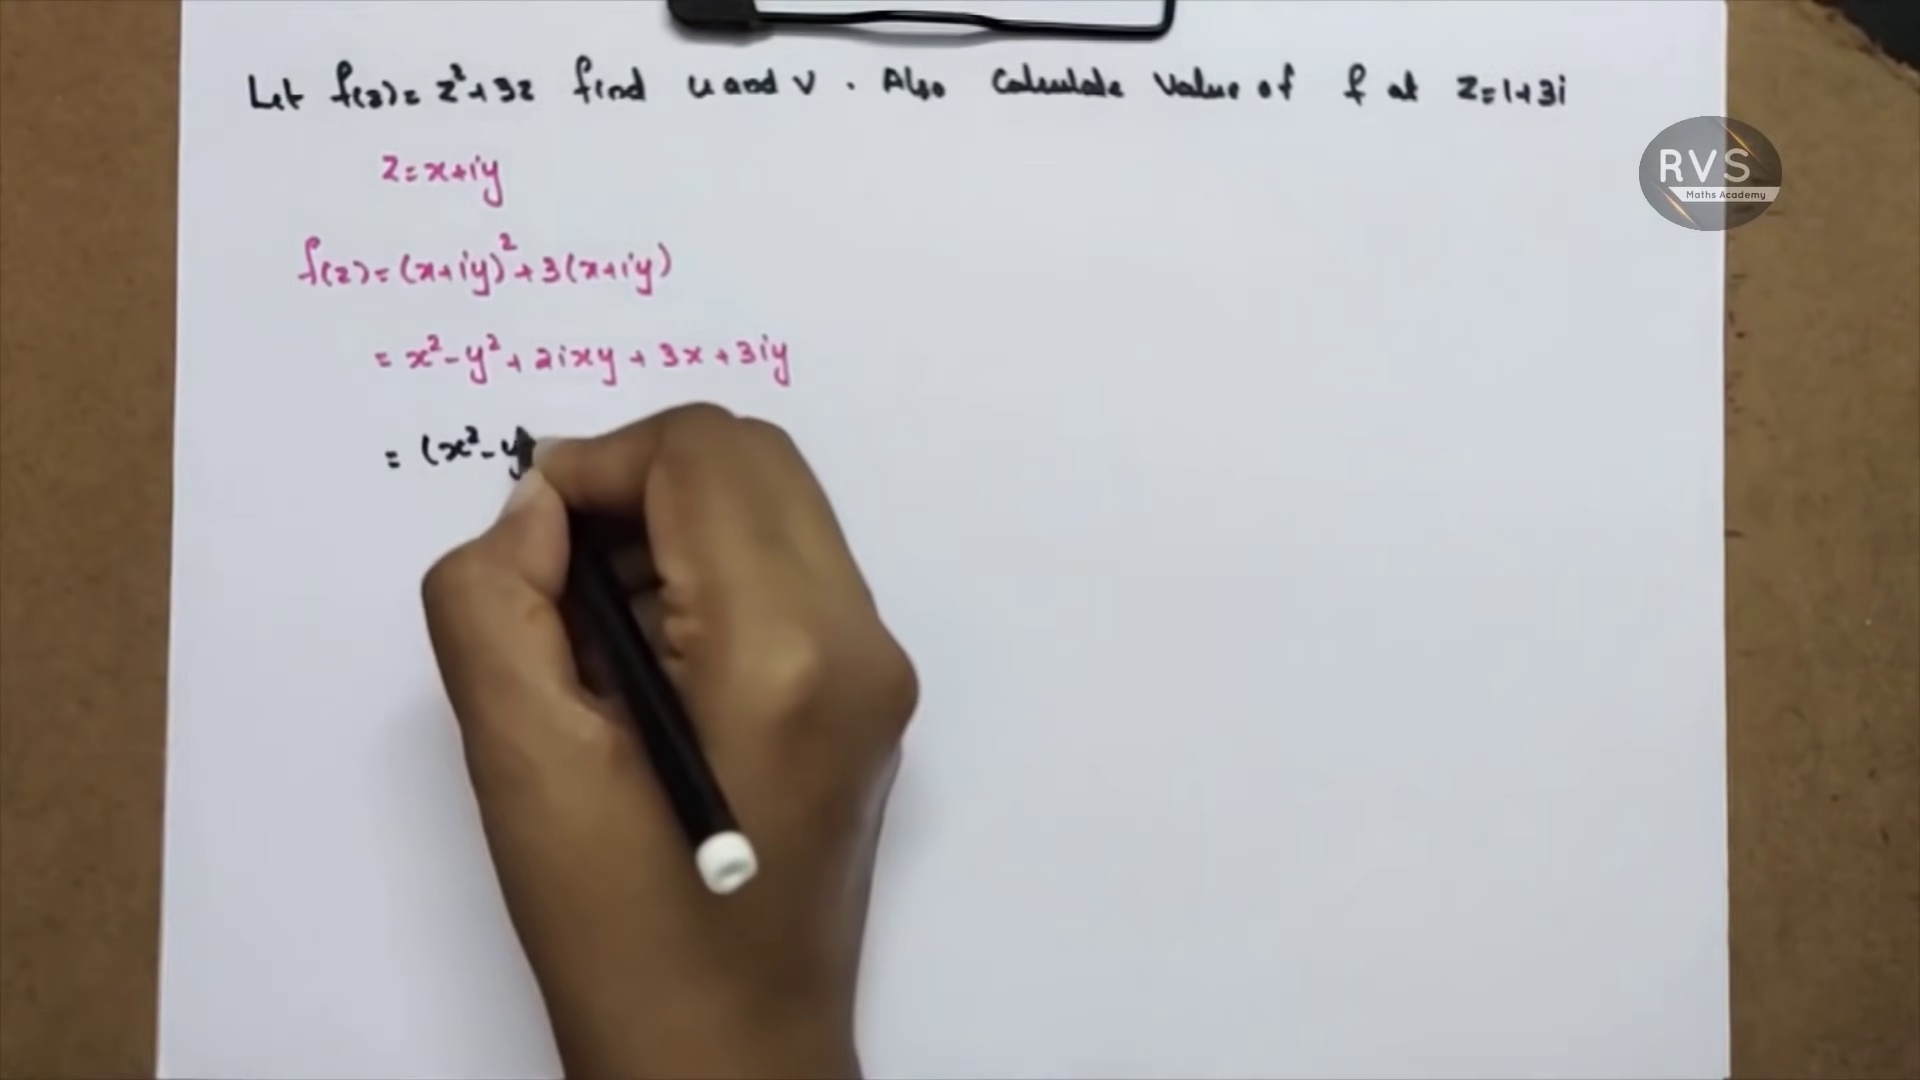 Let f(z) = z² + 3z find u and v . Also Calculate Value of f at z = 1+3i
RVS
Maths Academy
z = x+iy
f(z) = (x+iy)² + 3(x+iy)
= x² - y² + 2ixy + 3x + 3iy
= (x² - y